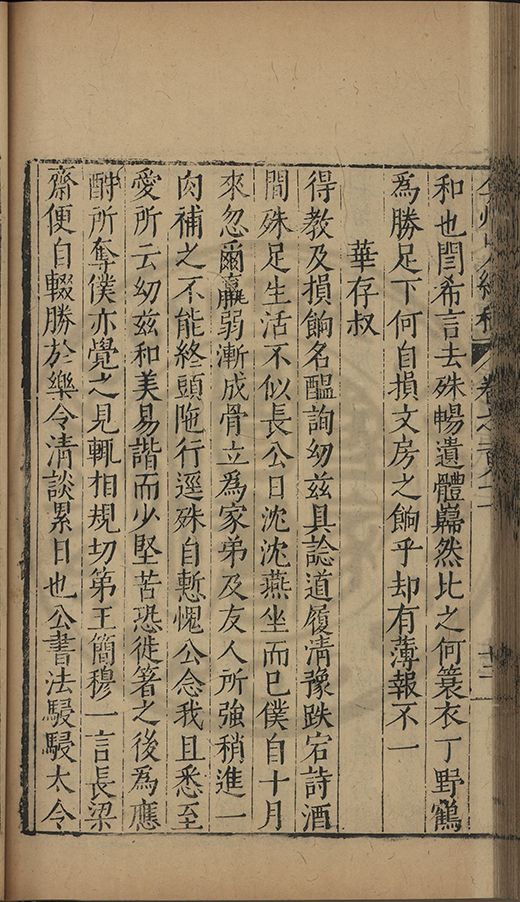 卷之一百八十二
十二
和也閆希言去殊暢遺體巋然比之何簑衣丁野鶴
為勝足下何自損文房之餉乎却有薄報不一
華存叔
得教及損餉名醞詢幼兹具諗道履清豫跌宕詩酒
間殊足生活不似長公日沈沈燕坐而已僕自十月
來忽爾羸弱漸成骨立為家弟及友人所強稍進一
肉補之不能終頭陁行逕殊自慙愧公念我且悉至
愛所云幼兹和美易諧而少堅苦恐徙箸之後為應
酧所奪僕亦覺之見輒相規切第王簡穆一言長梁
齋便自輟勝於樂令清談累日也公書法駸駸太令